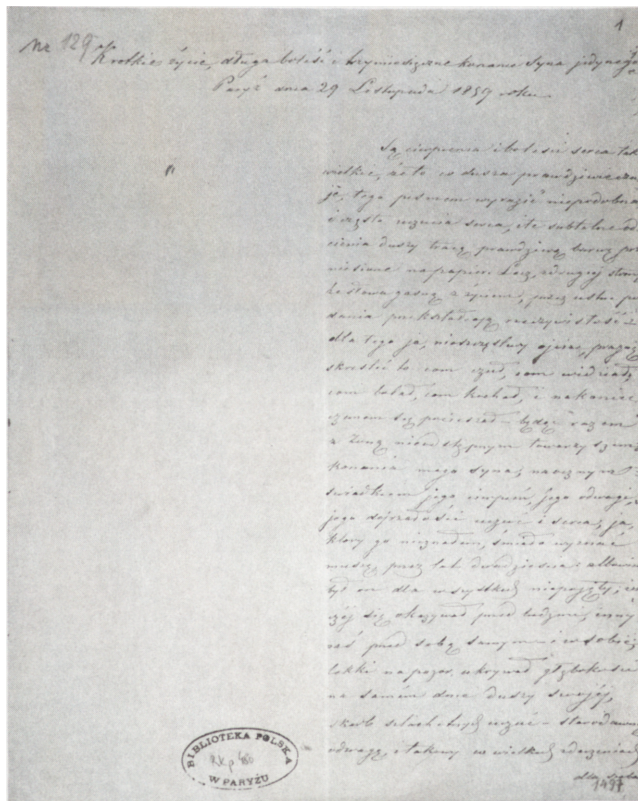 1
Nr 129
Krótkie życie, długa boleść i trzymiesięczne konanie syna jedynego
Paryż dnia 29 Listopada 1857 roku
Są cierpienia i boleści serca tak
wielkie, że to co dusza prawdziwie czu-
je, tego piórem wyrazić niepodobna
i częste uczucia serca, ile subtelne od-
cienia duszy tracą prawdziwą barwę prze
niesione na papier. Lecz z drugiej strony
że słowa gasną z życiem, przez ustne po
dania przekształcają rzeczywistość i
dla tego ja, nieszczęśliwy ojciec, pragnę
skreślić to com czuł, com widział,
com bolał, com kochał, i nakoniec
czemem się pocieszał – będąc razem
z Żoną nieodstępnym towarzyszem
konania mego syna, naocznym
świadkiem jego cierpień, jego odwagi,
jego dojrzałości uczuć i serca, ja,
który go nieznałem, śmiało wyznać
muszę, przez lat dwadzieścia; albowiem
był on dla wszystkich niepojęty,
się okazywał przed ludźmi,
zaś przed sobą samym i w sobie;
lekki na pozór, ukrywał głęboko
na samém dnie duszy swojéj,
skarb szlachetnych uczuć – starodawną
odwagę, i takowy w wielkich zdarzeniach
dla
BIBLIOTEKA POLSKA
W PARYŻU
Rkp
1497